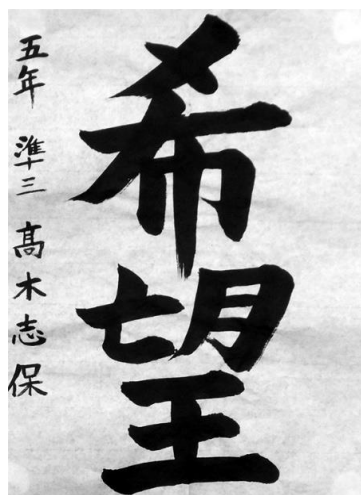 希望
五年 準三 髙木志保